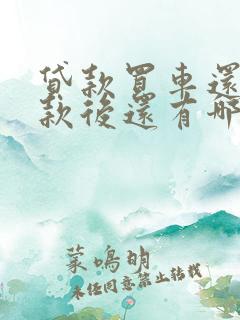 貸款買車還
款後還有哪
葉鳴明
未經同意禁止轉載